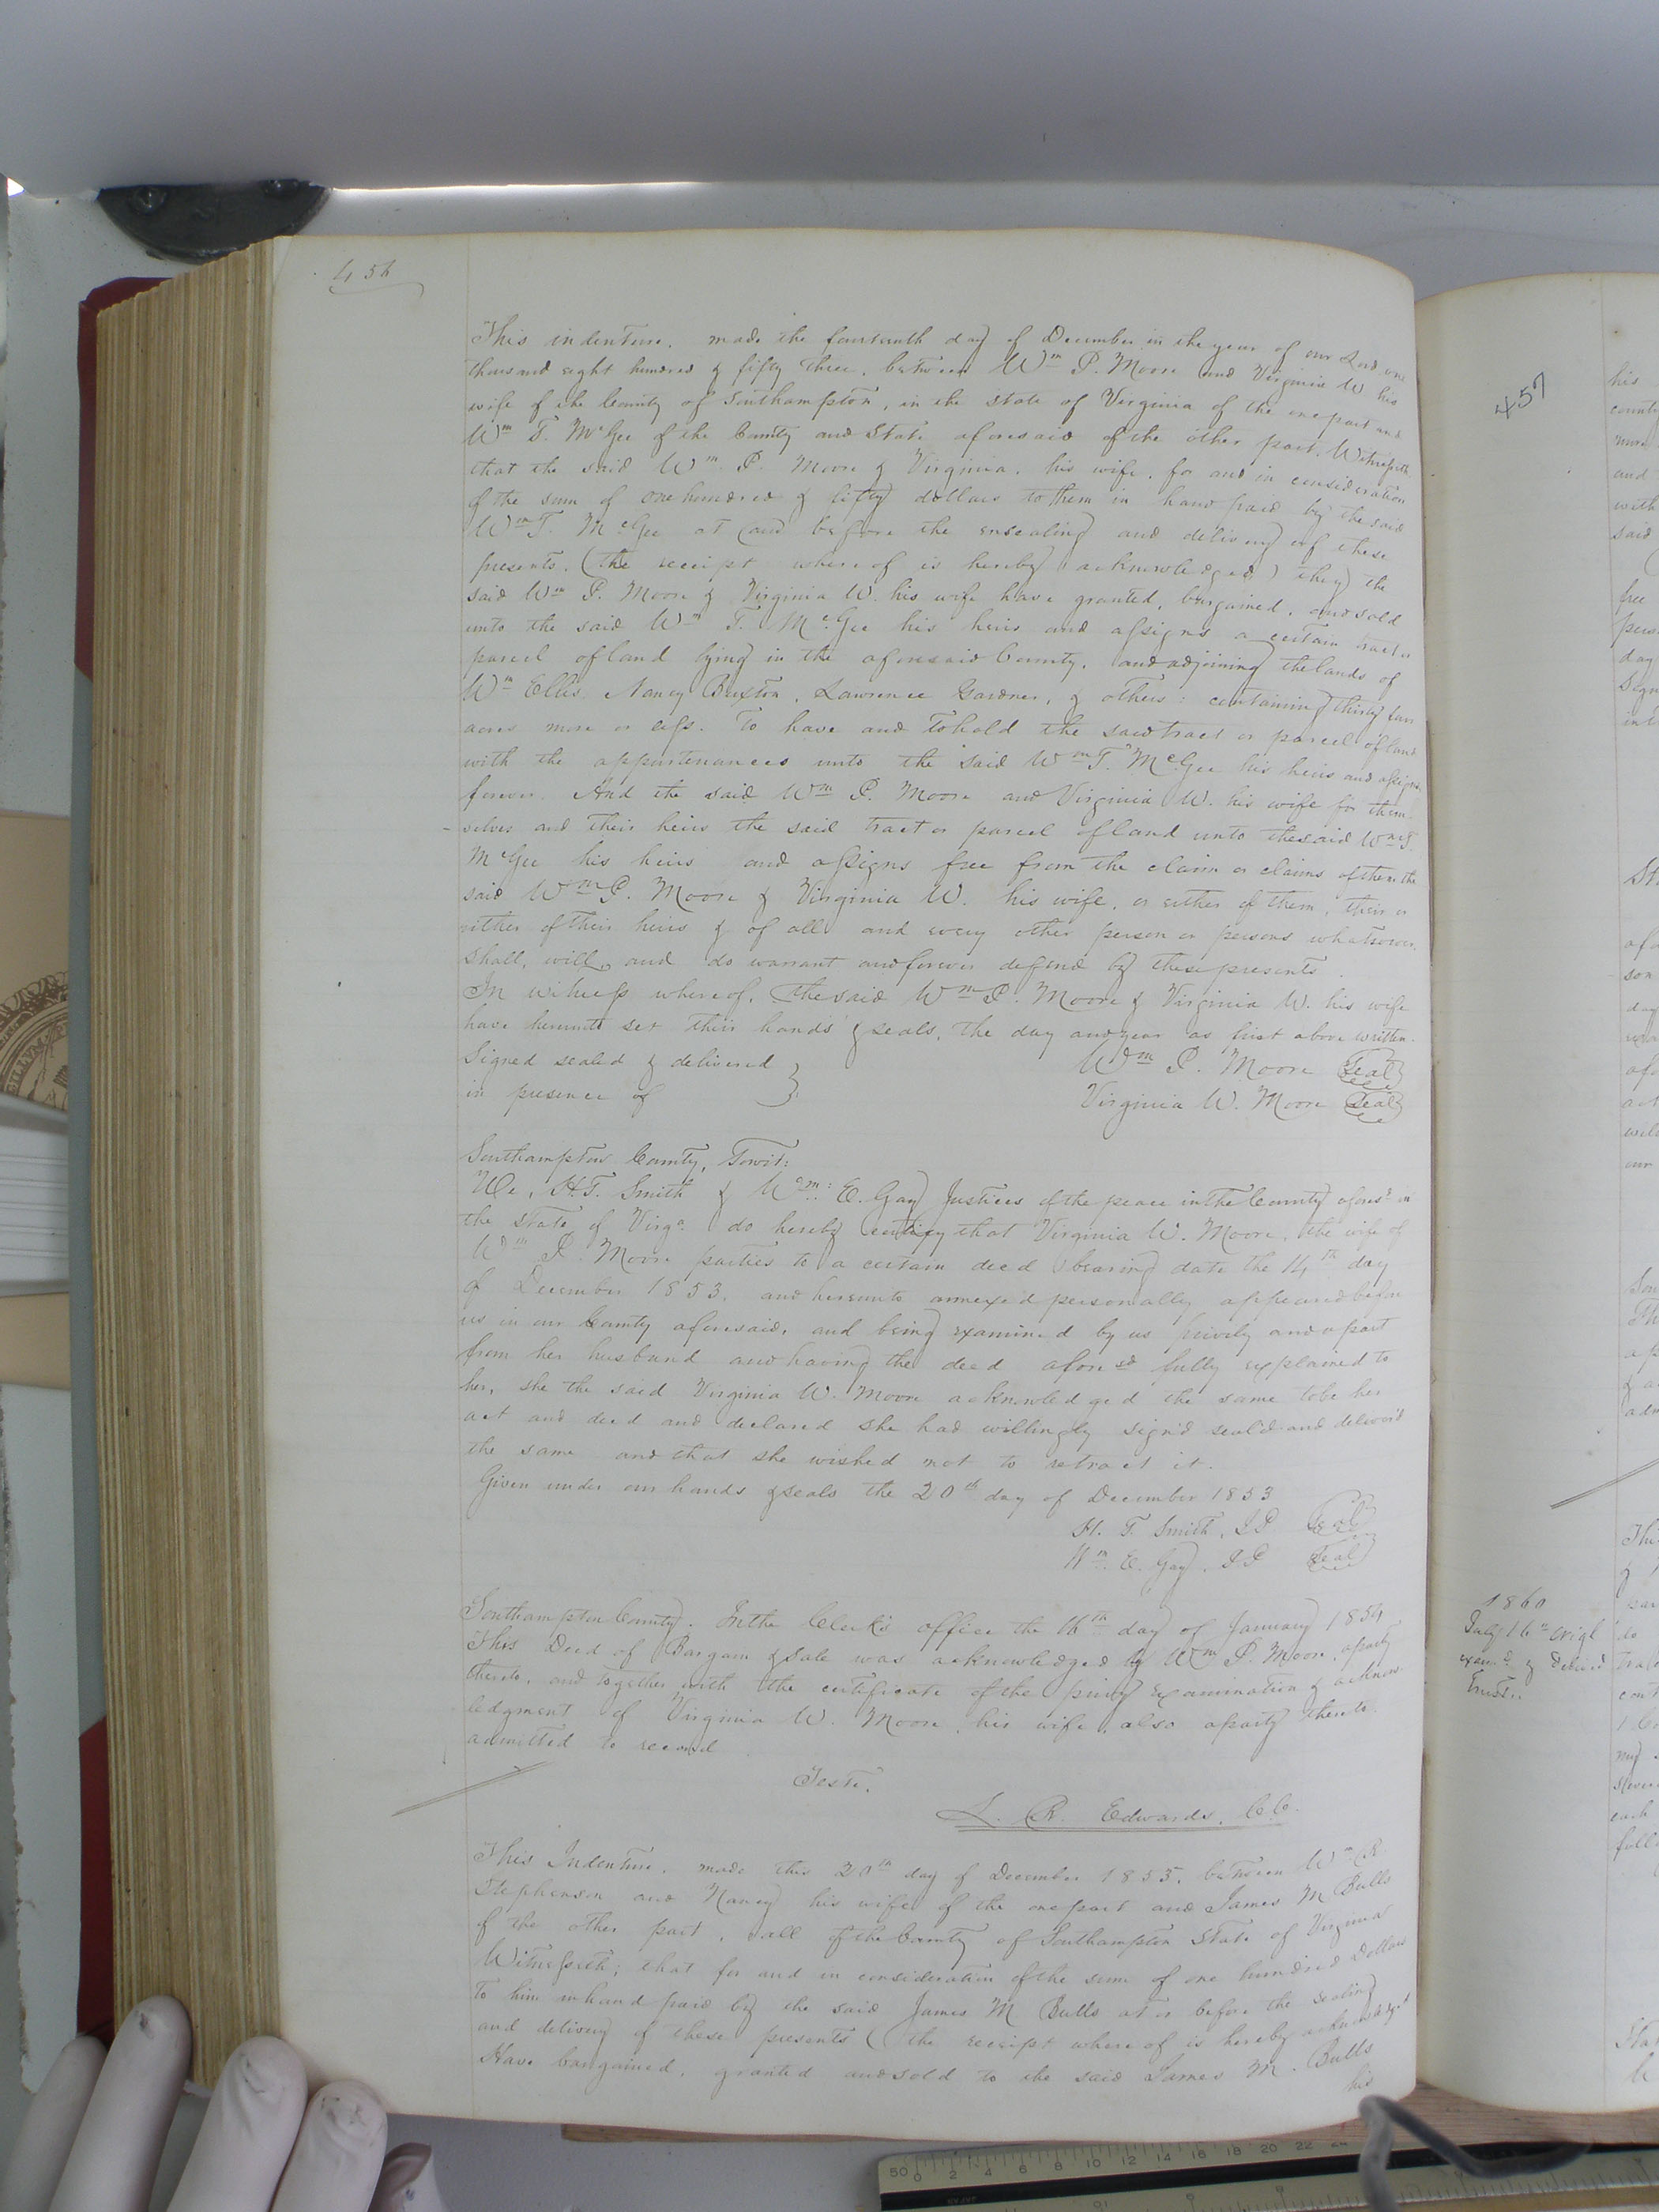 456
This indenture, made the fourteenth day of December in the year of our Lord one
thousand eight hundred & fifty three, between Wm P. Moore and Virginia W his
wife of the County of Southampton, in the State of Virginia of the one part and
Wm T. McGee of the County and State aforesaid of the other part, Witnesseth
that the said Wm P. Moore & Virginia, his wife, for and in consideration
of the sum of one hundred & fifty dollars to them in hand paid by the said
Wm T. McGee at and before the ensealing and delivery of these
presents, (the receipt whereof is hereby acknowledged,) they the
said Wm P. Moore & Virginia W. his wife have granted, bargained, and sold
unto the said Wm T. McGee his heirs and assigns a certain tract or
parcel of land lying in the aforesaid County, and adjoining the lands of
Wm Ellis, Nancy Buxton, Lawrence Gardner, & others: containing thirty four
acres more or less. To have and to hold the said tract or parcel of land
with the appurtenances unto the said Wm T. McGee his heirs and assigns,
forever. And the said Wm P. Moore and Virginia W. his wife for them-
-selves and their heirs the said tract or parcel of land unto the said Wm T.
McGee his heirs and assigns free from the claim or claims of them the
said Wm P. Moore & Virginia W. his wife, or either of them, their or
either of their heirs & of all and every other person or persons whatsoever
shall, will, and do warrant and forever defend by these presents.
In witness whereof, the said Wm P. Moore & Virginia W. his wife
have hereunto set their hands & seals, the day and year as first above written.
Signed sealed & delivered } Wm P. Moore Seal
in presence of Virginia W. Moore Seal
Southampton County, Towit:
We, H.T. Smith & Wm: E. Gay Justices of the peace in the County afores'd in
the State of Virga do hereby certify that Virginia W. Moore, the wife of
Wm P. Moore parties to a certain deed bearing date the 14th day
of December 1853, and hereunto annexe'd personally appeared before
us in our County aforesaid, and being examined by us privily and apart
from her husband and having the deed aforesd fully explained to
her, she the said Virginia W. Moore acknowledged the same to be her
act and deed and declared she had willingly sign'd seal'd and deliver'd
the same and that she wished not to retract it.
Given under our hands & seals the 20th day of December 1853
H. T. Smith, JP Seal
Wm. E. Gay, JP Seal
Southampton County. In the Clerk's office the 16th day of January 1854
This Deed of Bargain & Sale was acknowledged by Wm P. Moore, a party
thereto, and together with the certificate of the privy examination & acknow-
ledgment of Virginia W. Moore, his wife, also a party thereto.
admitted to record
Teste,
L. R. Edwards, C.C.
This Indenture, made this 20th day of December 1853, between Wm R.
Stephenson and Nancy his wife of the one part and James M Bulls
of the other part, all of the County of Southampton State of Virginia
Witnesseth; that for and in consideration of the sum of one hundred Dollars
to him in hand paid by the said James M Bulls at or before the sealing
and delivery of these presents (the receipt whereof is hereby acknowledged
Have bargained, granted and sold to the said James M. Bulls
his
457
his
county
more
and
with
said
free
day
1860
July 16th origl
exam'd & deliver'd
50 0 2 4 6 8 10 12 14 16 18 20 22